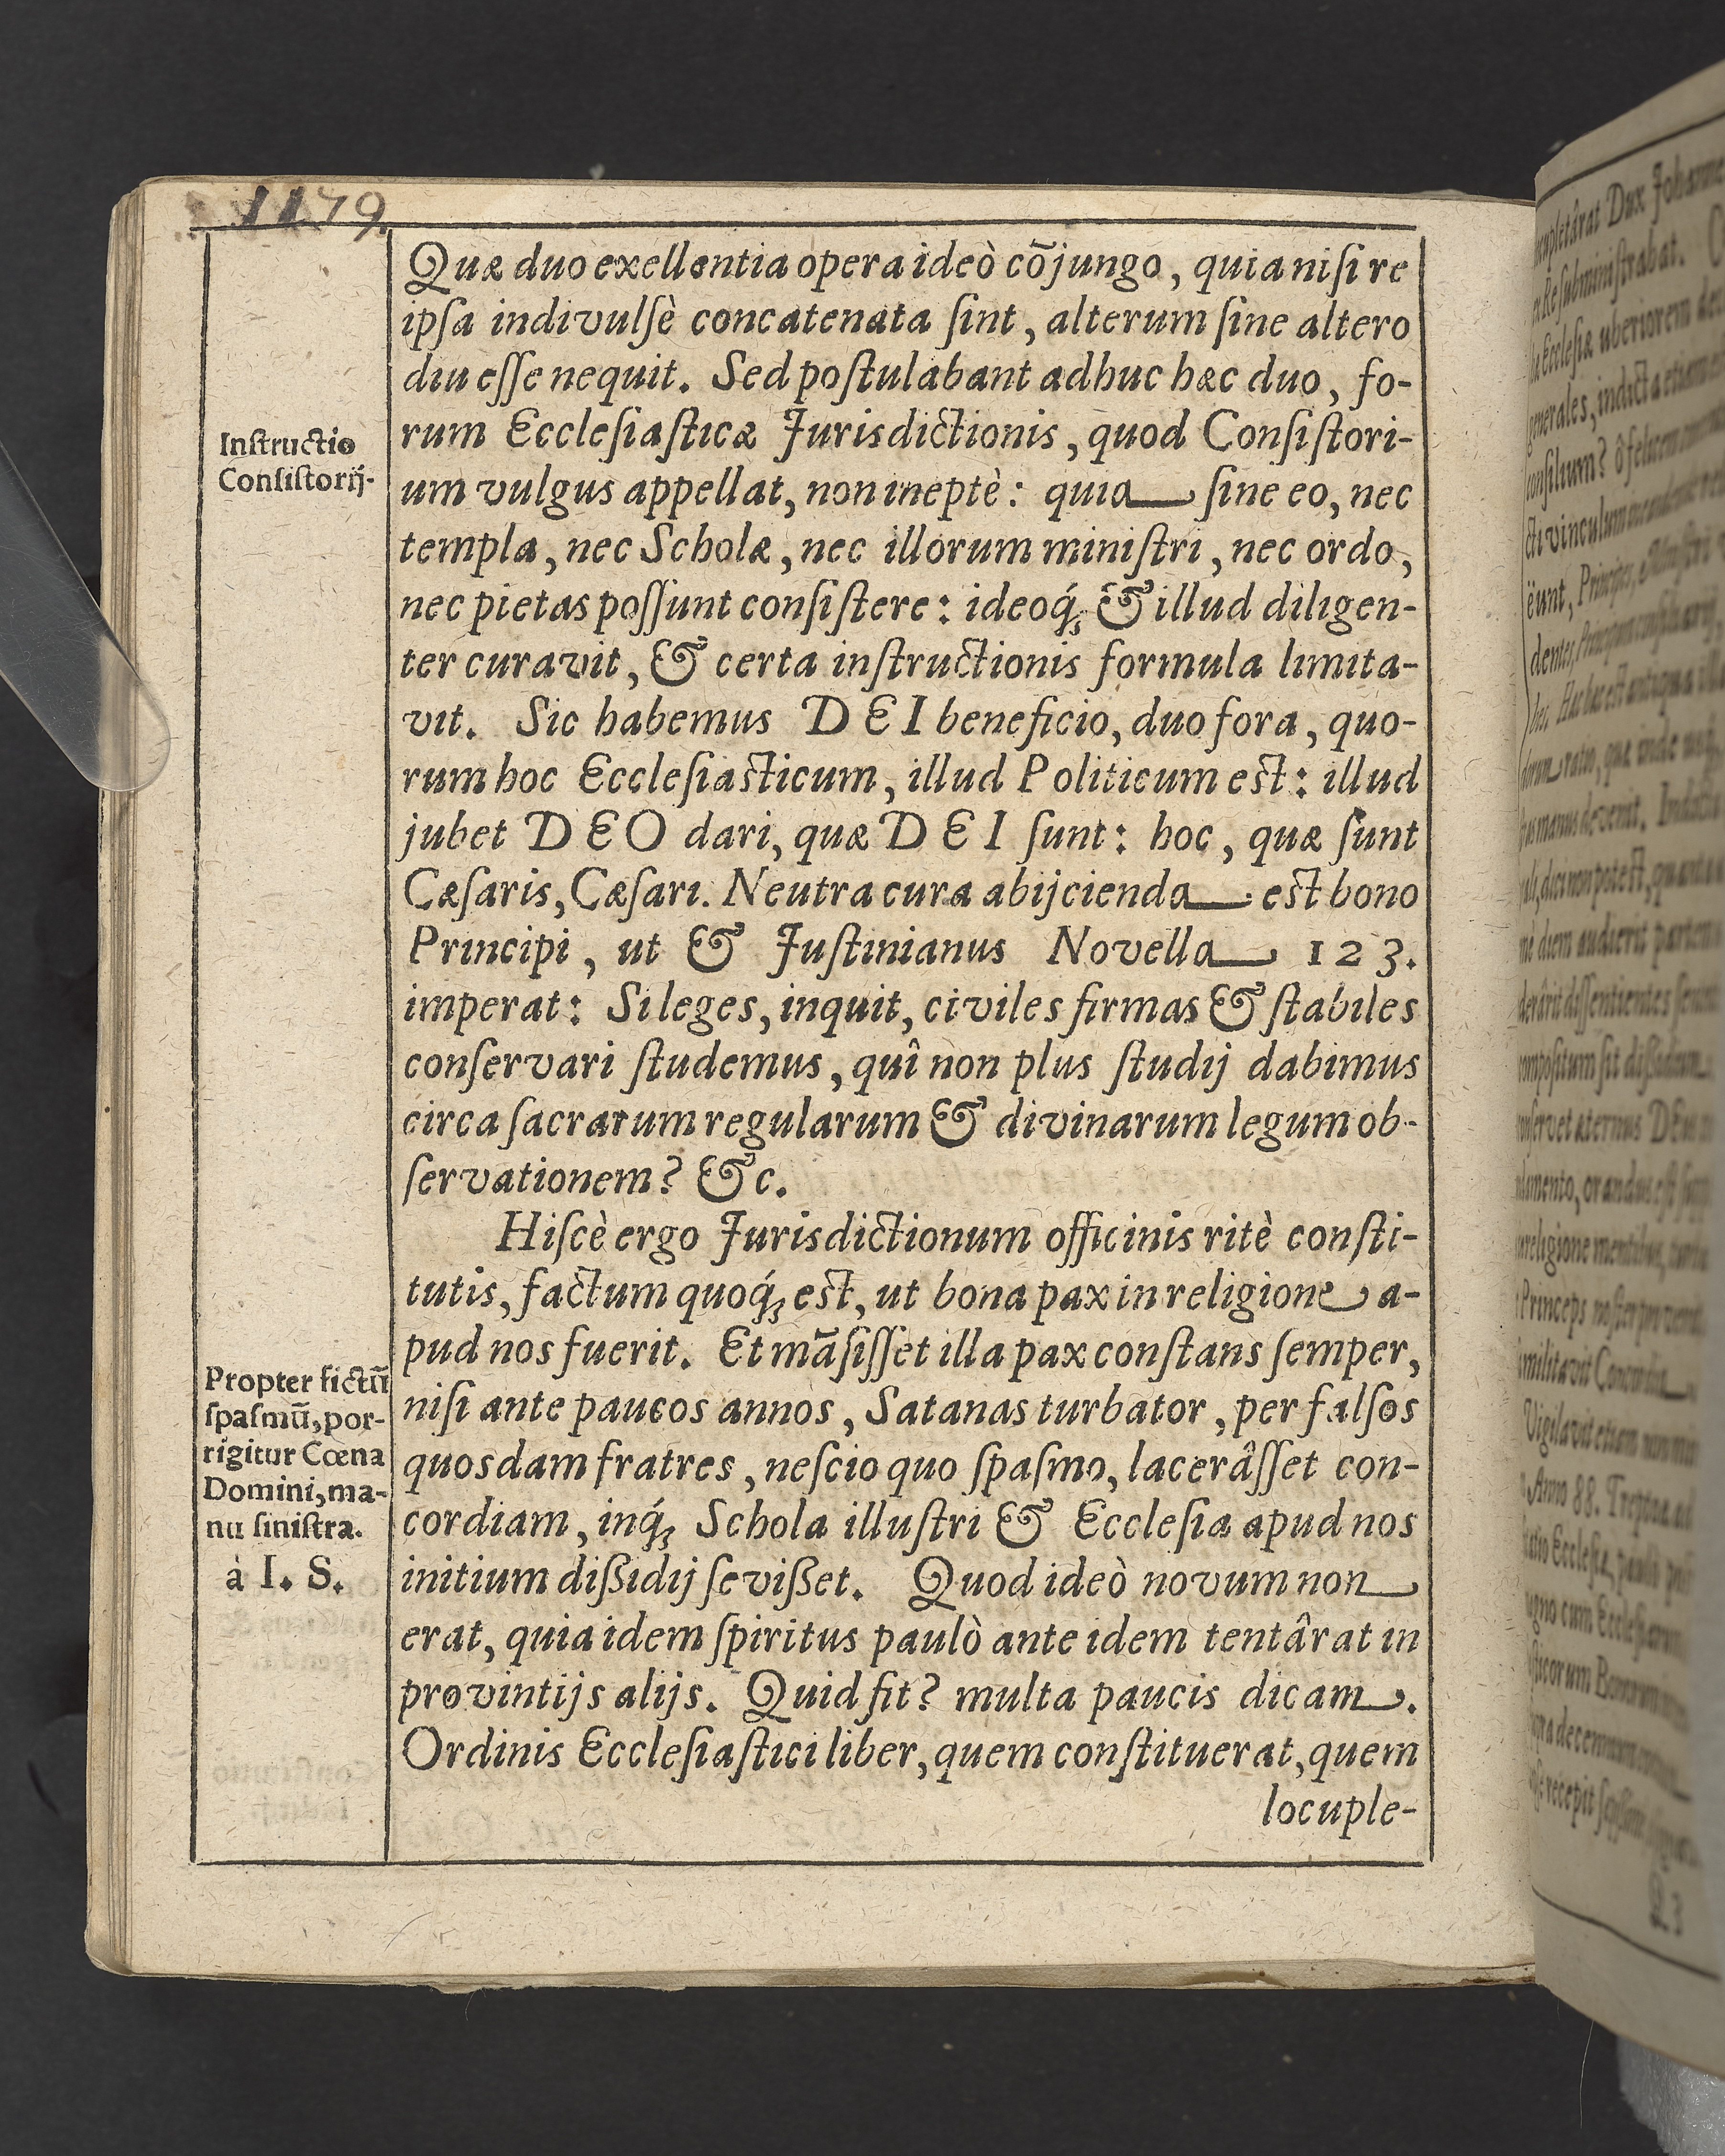 1179.
Quæ duo exellentia opera ideò cõjungo, quia niſi re
ipſa indivulſè concatenata ſint, alterum ſine altero
diu eſſe nequit. Sed poſtulabant adhuc hæc duo, fo-
rum Eccleſiaſticæ Jurisdictionis, quod Conſiſtori-
um vulgus appellat, non ineptè: quia ſine eo, nec
templa, nec Scholæ, nec illorum miniſtri, nec ordo,
nec pietas poſſunt conſiſtere: ideoq́; & illud diligen-
ter curavit, & certa inſtructionis formula limita-
vit. Sic habemus DEI beneficio, duo fora, quo-
rum hoc Eccleſiaſticum, illud Politicum eſt: illud
jubet DEO dari, quæ DEI ſunt: hoc, quæ ſunt
Cæſaris, Cæſari. Neutra cura abijcienda eſt bono
Principi, ut & Juſtinianus Novella 123.
imperat: Si leges, inquit, civiles firmas & ſtabiles
conſervari ſtudemus, quî non plus ſtudij dabimus
circa ſacrarum regularum & divinarum legum ob-
ſervationem? &c.
Hiſcè ergo Jurisdictionum officinis ritè conſti-
tutis, factum quoq́; eſt, ut bona pax in religione a-
pud nos fuerit. Et mãſiſſet illa pax conſtans ſemper,
niſi ante paucos annos, Satanas turbator, per falſos
quosdam fratres, neſcio quo ſpaſmo, lacerâſſet con-
cordiam, inq́; Schola illuſtri & Eccleſia apud nos
initium dißidij ſevißet. Quod ideò novum non
erat, quia idem ſpiritus paulò ante idem tentârat in
provintijs alijs. Quid fit? multa paucis dicam.
Ordinis Eccleſiaſtici liber, quem conſtituerat, quem
locuple-
Inſtructio
Conſiſtorij.
Propter fictũ
ſpaſmũ, por-
rigitur Cœna
Domini, ma-
nu ſiniſtra.
à I. S.